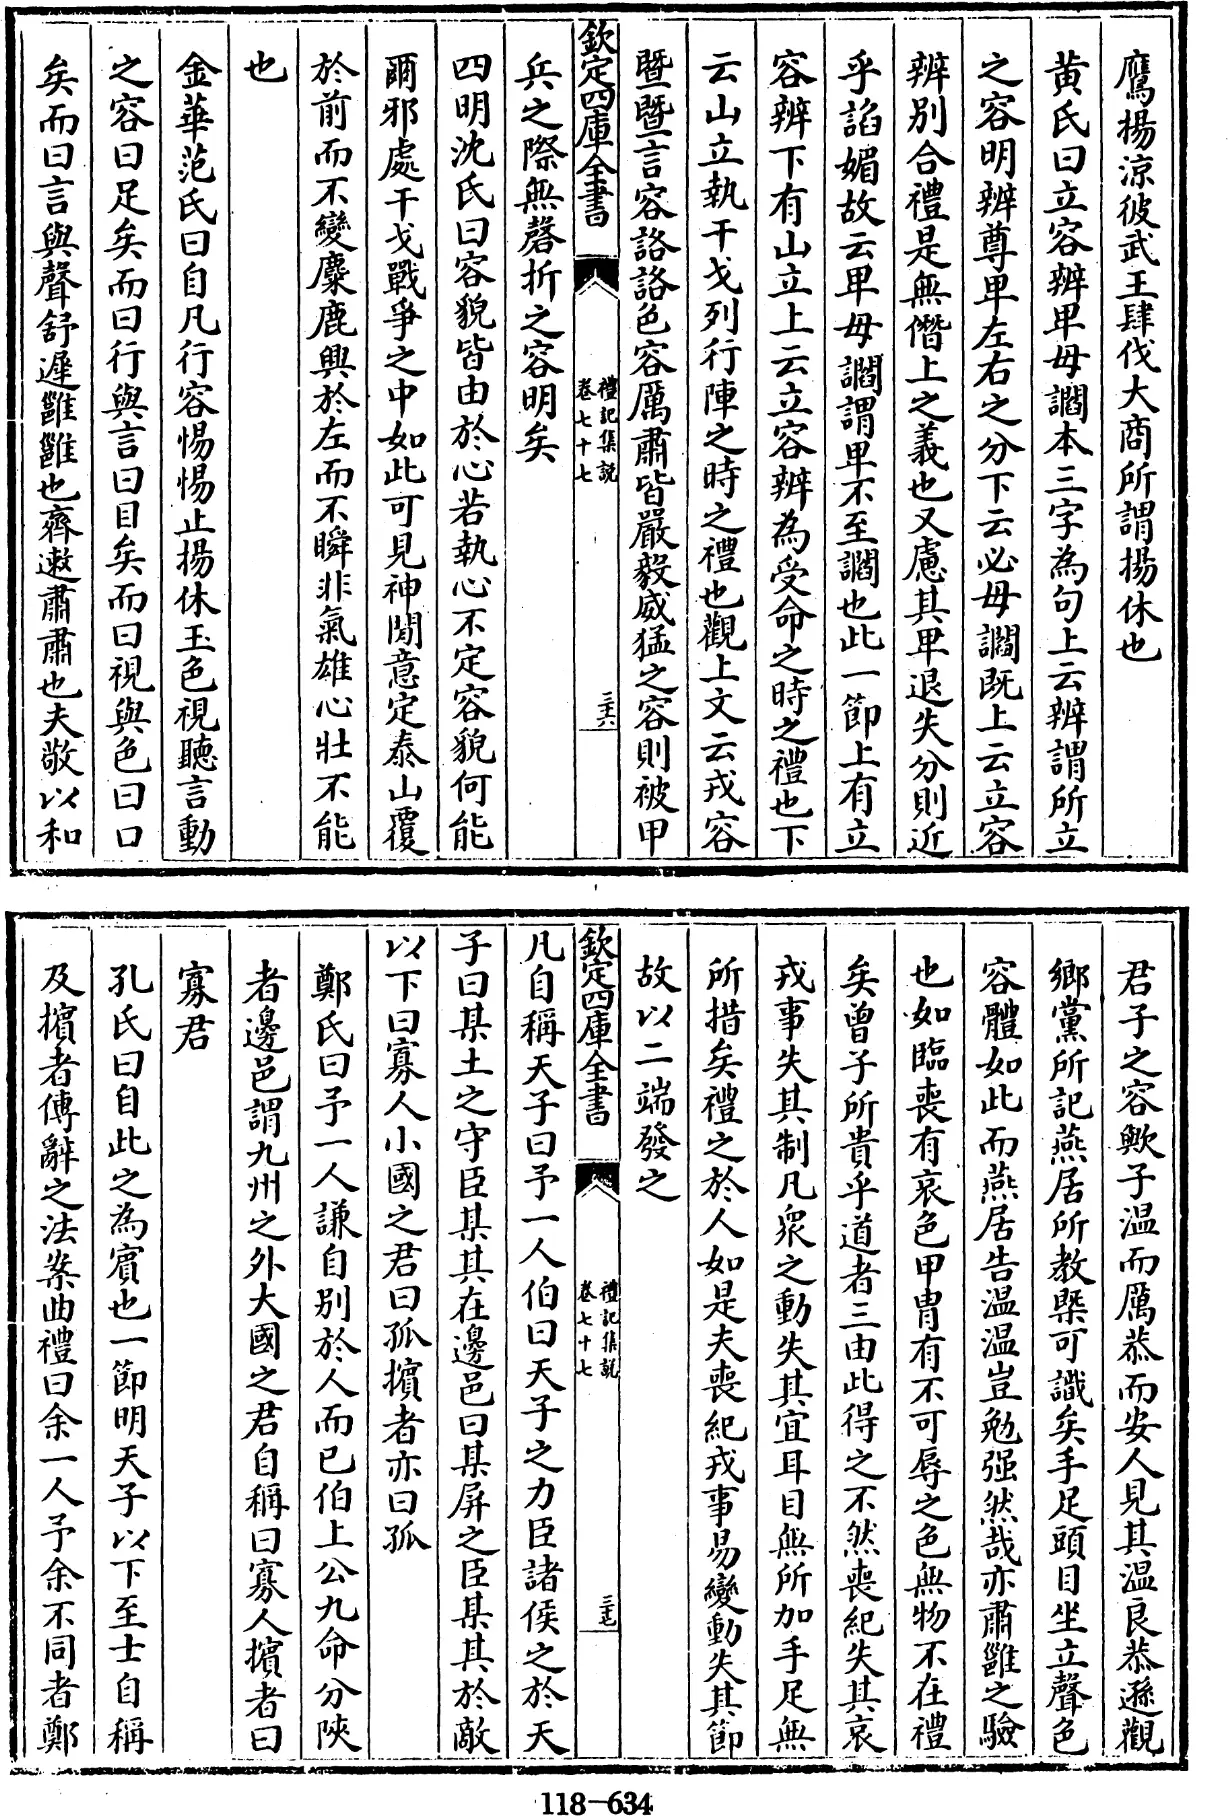 鷹揚涼彼武王肆伐大商所謂揚休也
黄氏曰立容辨卑毋讇本三字為句上云辨謂所立
之容明辨尊卑左右之分下云必毋讇既上云立容
辨别合禮是無僭上之義也又慮其卑退失分則近
乎諂媚故云卑毋讇謂卑不至讇也此一節上有立
容辨下有山立上云立容辨為受命之時之禮也下
云山立執干戈列行陣之時之禮也觀上文云戎容
暨暨言容詻詻色容厲肅皆嚴毅威猛之容則被甲
欽定四庫全書
禮記集說
卷七十七
三六
兵之際無磬折之容明矣
四明沈氏曰容貌皆由於心若執心不定容貌何能
爾邪處干戈戰爭之中如此可見神閒意定泰山覆
於前而不變麋鹿興於左而不瞬非氣雄心壯不能
也
金華范氏曰自凡行容惕惕止揚休玉色視聽言動
之容曰足矣而曰行與言曰目矣而曰視與色曰口
矣而曰言與聲舒遲雝雝也齊遬肅肅也夫敬以和
君子之容歟子温而厲恭而安人見其温良恭遜觀
鄉黨所記燕居所教槩可識矣手足頭目坐立聲色
容體如此而燕居告温温豈勉强然哉亦肅雝之驗
也如臨喪有哀色甲冑有不可辱之色無物不在禮
矣曾子所貴乎道者三由此得之不然喪紀失其哀
戎事失其制凡衆之動失其宜耳目無所加手足無
所措矣禮之於人如是夫喪紀戎事易變動失其節
故以二端發之
欽定四庫全書
禮記集說
卷七十七
三七
凡自稱天子曰予一人伯曰天子之力臣諸侯之於天
子曰某土之守臣某其在邊邑曰某屏之臣某其於敵
以下曰寡人小國之君曰孤擯者亦曰孤
鄭氏曰予一人謙自别於人而已伯上公九命分陝
者邊邑謂九州之外大國之君自稱曰寡人擯者曰
寡君
孔氏曰自此之為賓也一節明天子以下至士自稱
及擯者傳辭之法案曲禮曰余一人予余不同者鄭
118-634